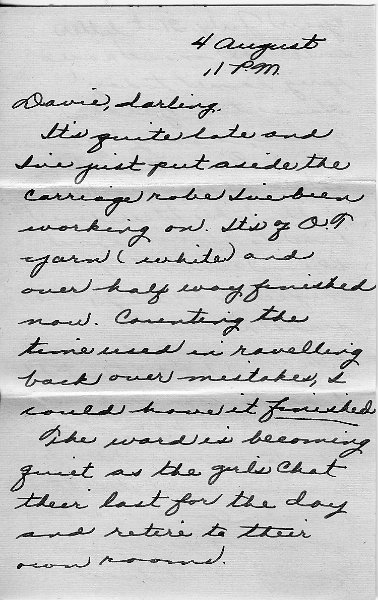 4 August
11 P.M.
Davie, darling,
It's quite late and
I've just put aside the
carriage robe I've been
working on. It's of O.T
yarn (white) and
over half way finished
now. Counting the
time used in ravelling
back over mistakes, I
could have it finished
The ward is becoming
quiet as the girls chat
their last for the day
and retire to their
own rooms.